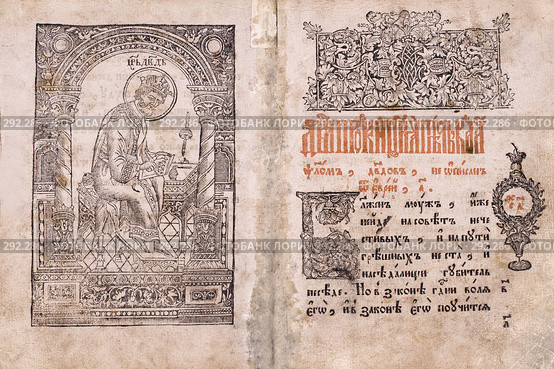 ЦРЬ ДВДЪ
ѱаломъ, двдовъ, не ѡписанъ
ѿ еврей, а.
Блженъ моужъ, иже
неиде на совѣтъ нече
стивыхъ, и на пути
грѣшныхъ неста, и
насѣдалищи губитель
несѣде. Но в законѣ гдни воля
егѡ, и въ законѣ егѡ поучится
292.286 - ФОТОБАНК ЛОРИ